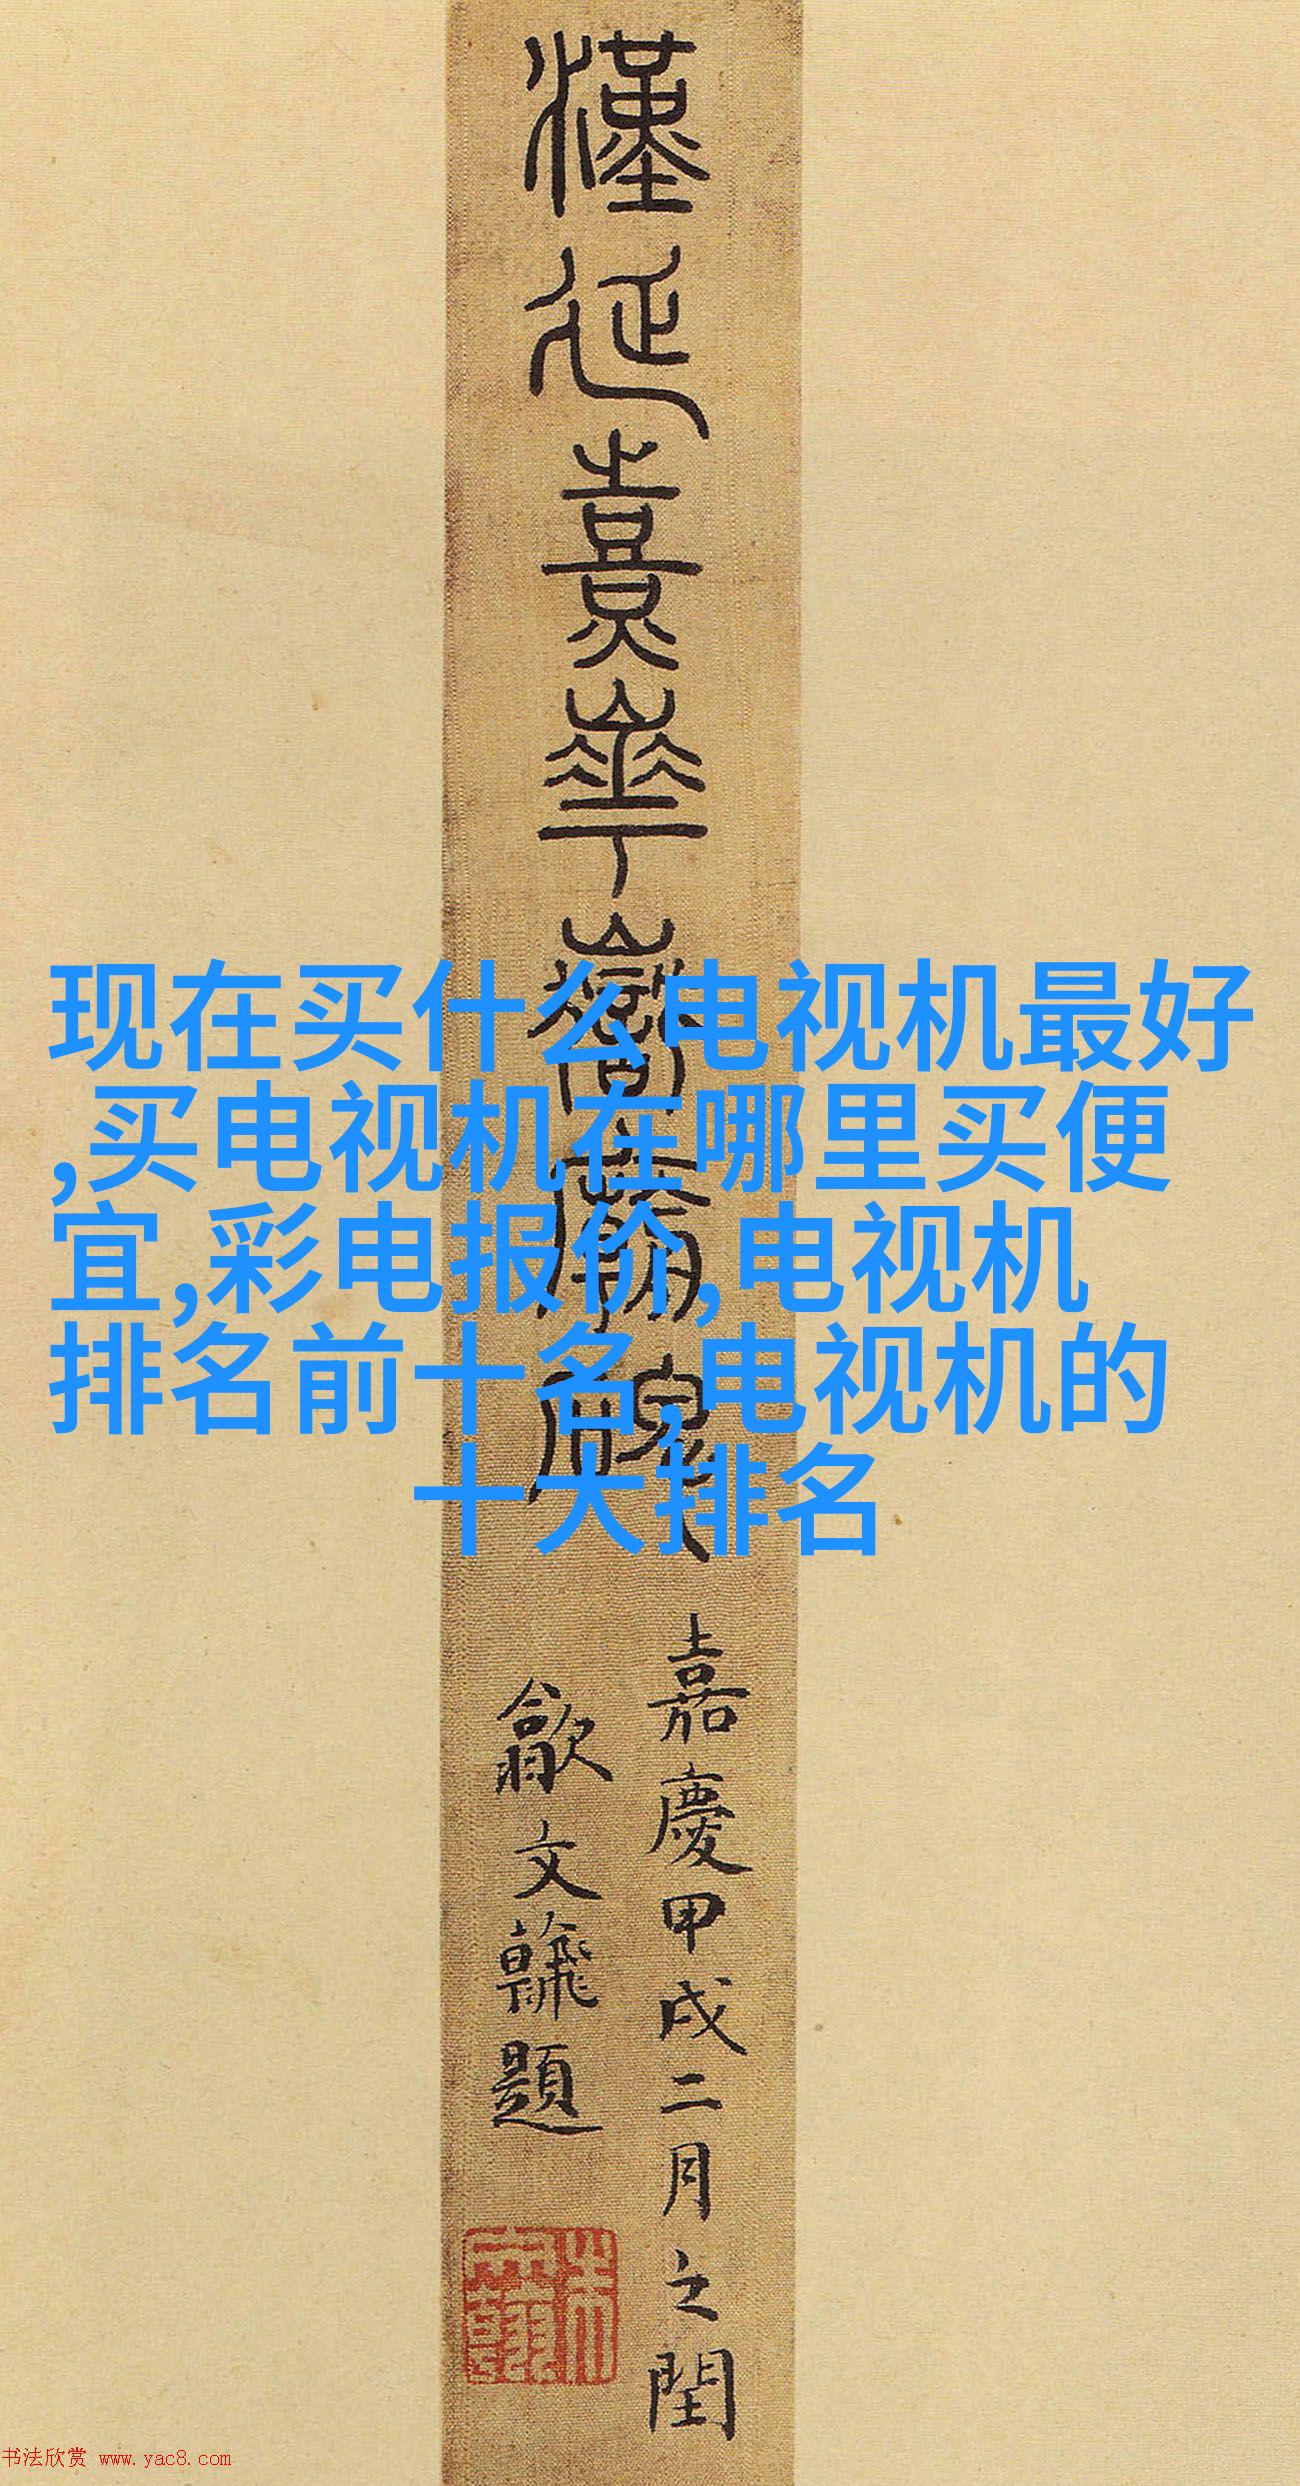 漢延熹華嶽廟碑
現在买什么电视机最好
,买电视机在哪里买便
宜,彩电报价,电视机
排名前十名,电视机的
十大排名
嘉慶甲戌二月之閏
歙文
題
书法欣赏 www.yac8.com